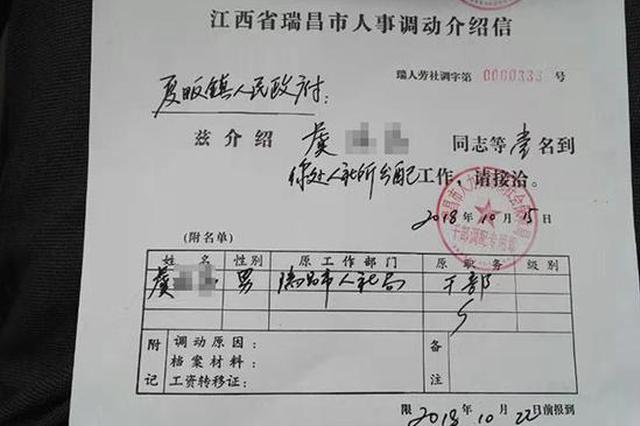 江西省瑞昌市人事调动介绍信
瑞人劳社调字第 0000333 号
夏畈镇人民政府：
兹介绍 虞 同志等 壹 名到
你处人社所分配工作，请接洽。
2018 年 10 月 15 日
干部调配专用章
(附名单)
姓名 性别 原工作部门 原职务 级别
虞 男 瑞昌市人社局 干部
附记 调动原因： 备注
档案材料：
工资转移证：
限 2018 年 10 月 22 日前报到